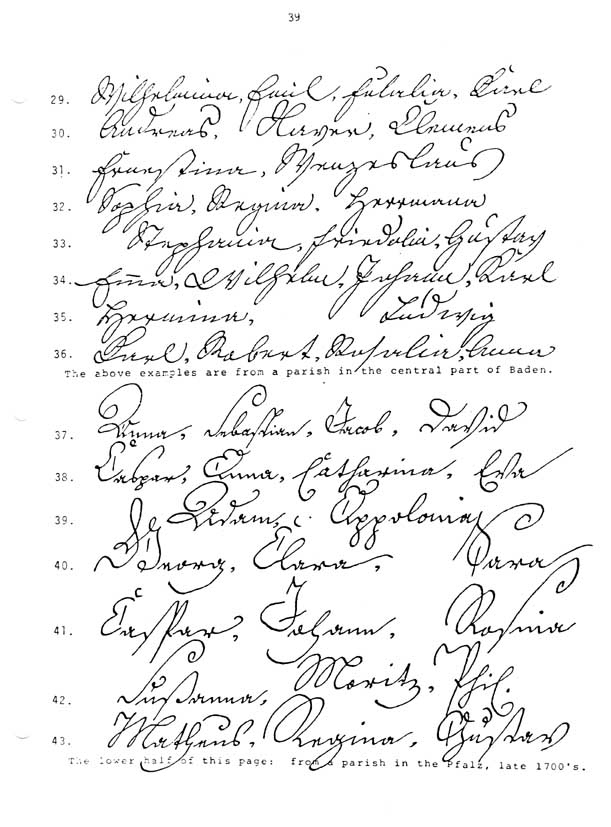 39
29. Wilhelmina, Emil, Eulalia, Karl
30. Andreas, Xaver, Clemens
31. Ernestina, Wenzeslaus
32. Sophia, Regina. Herrmann
33. Stephania, Friedolin, Gustav
34. Emma, Wilhelm, Johann, Karl
35. Hermina, Ludwig
36. Karl, Robert, Rosalia, Anna
The above examples are from a parish in the central part of Baden.
37. Anna, Sebastian, Jacob, David
38. Caspar, Anna, Catharina, Eva
39. Adam, Appolonia
40. Georg, Clara, Sara
41. Caspar, Johann, Rosina
42. Sußanna, Moritz, Phil.
43. Matheus, Regina, Gustav
The lower half of this page: from a parish in the Pfalz, late 1700's.